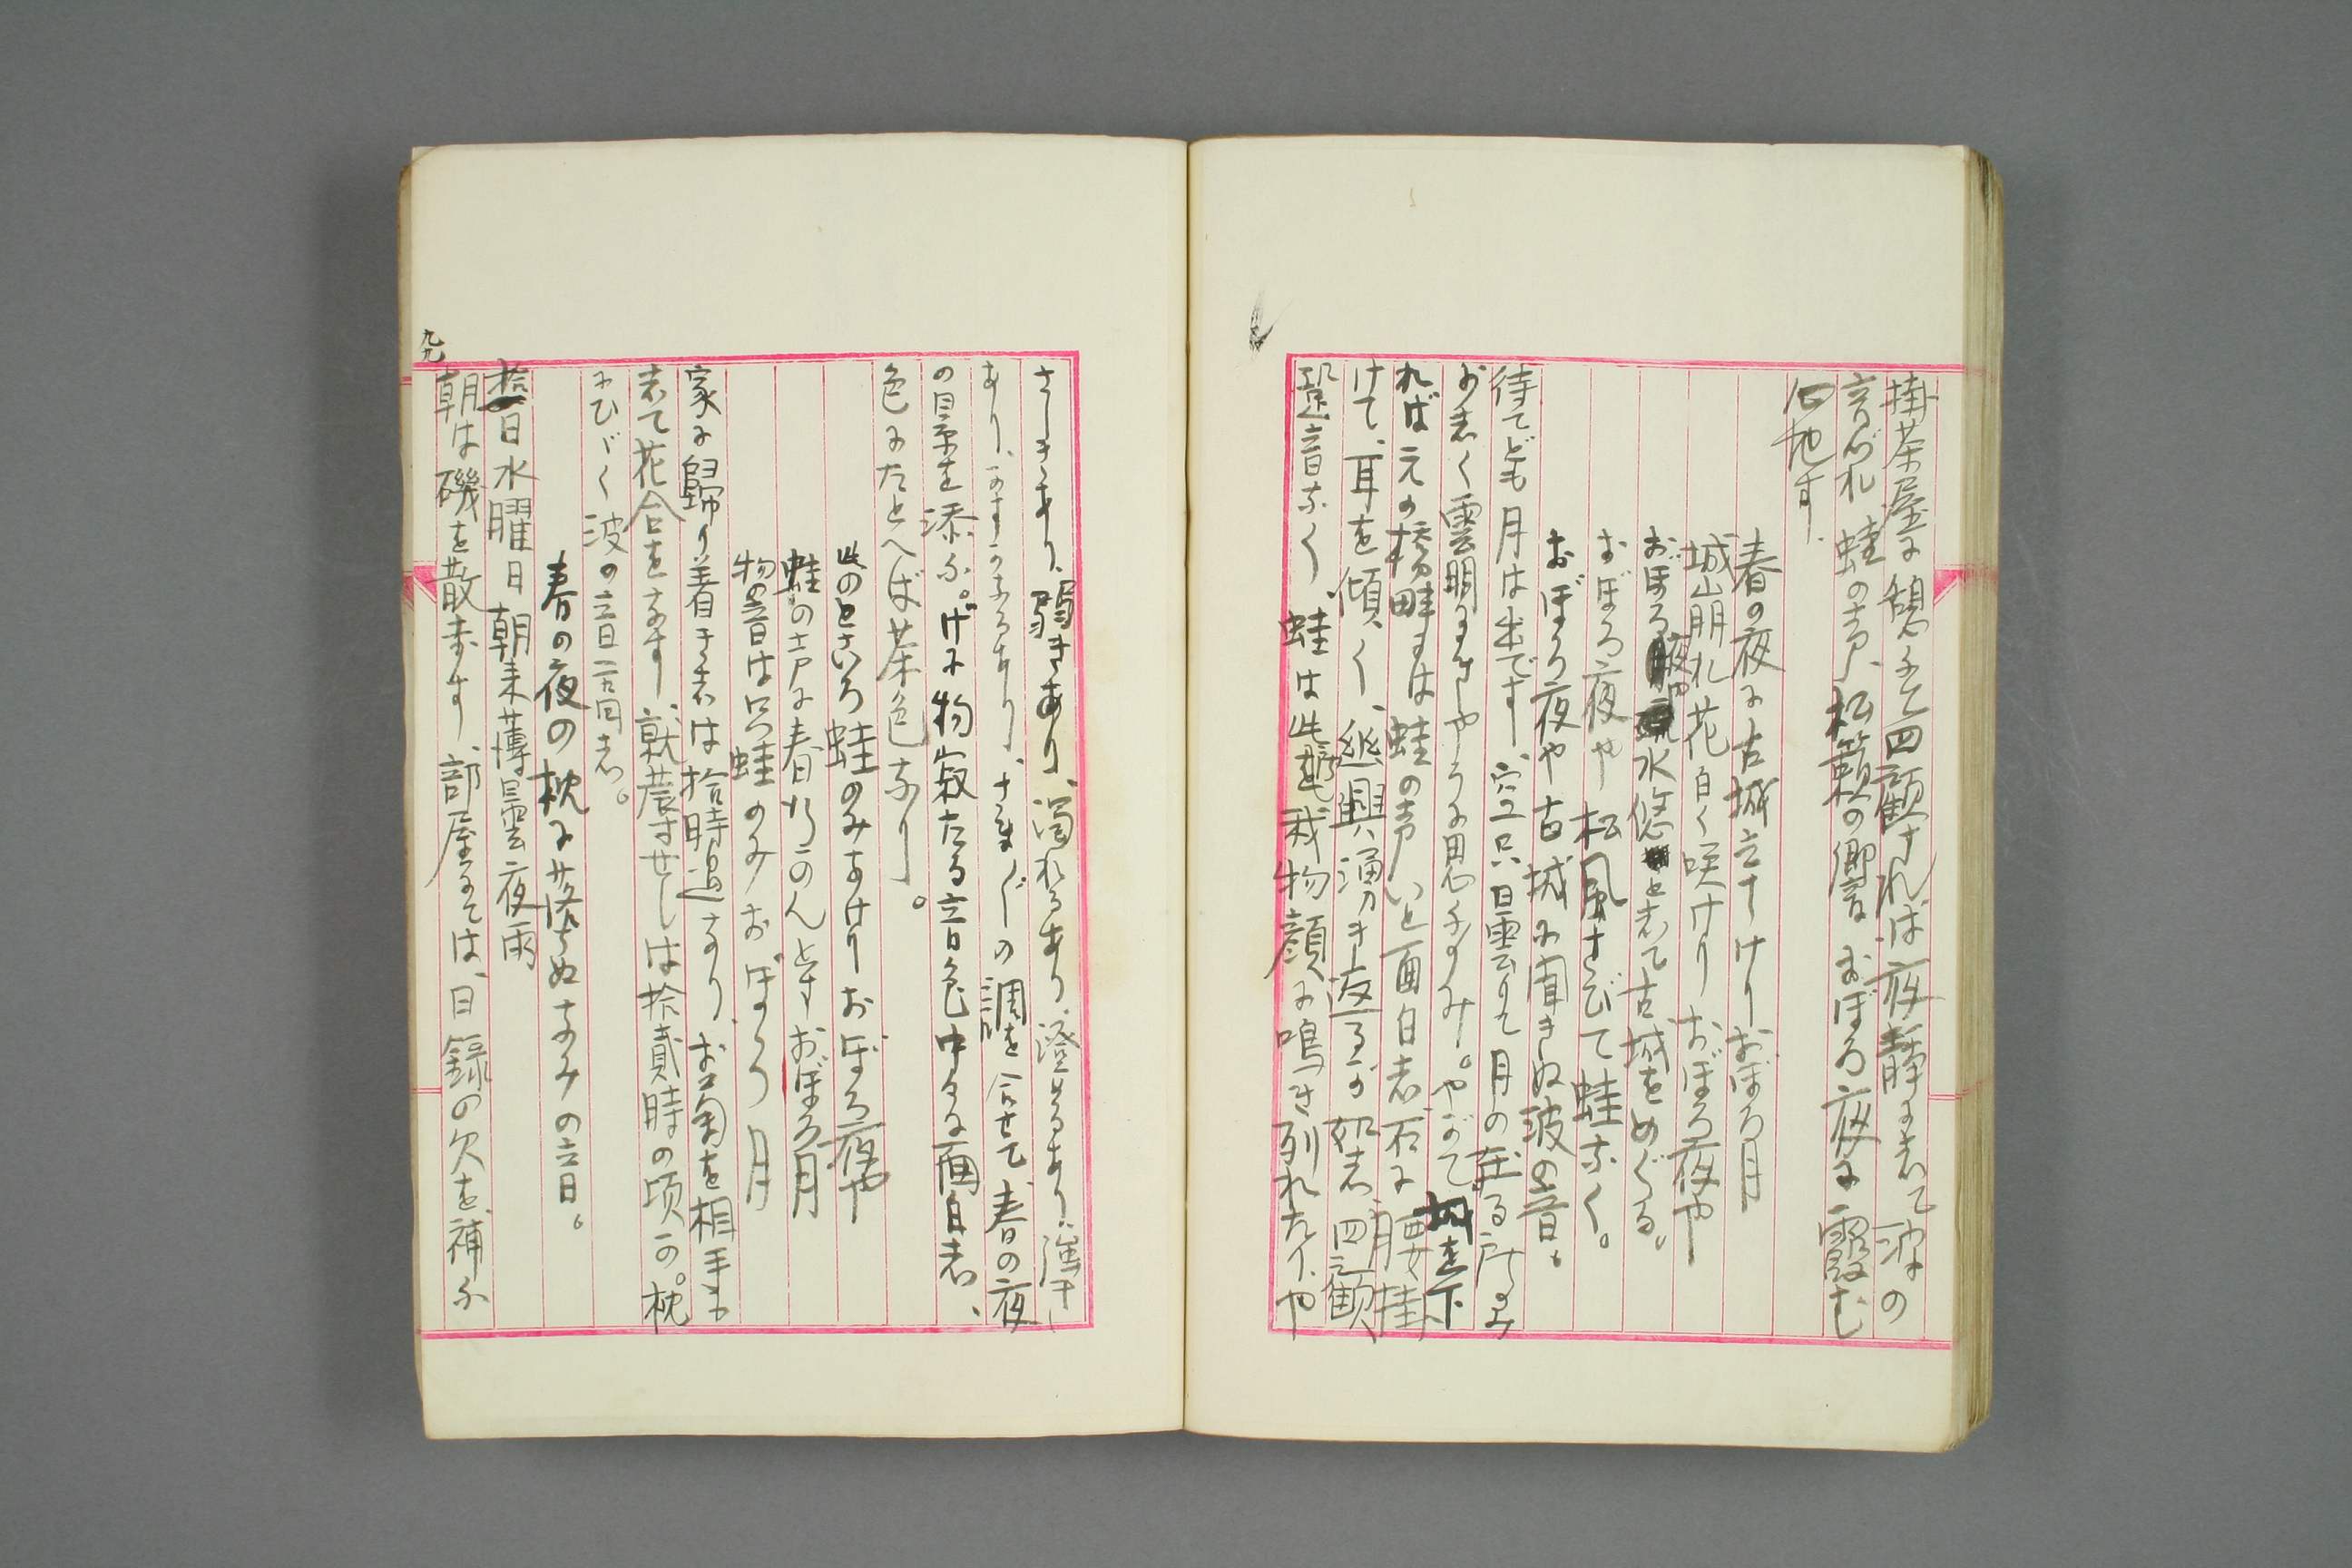 掛茶屋に憩ふて四顧すれば夜静にして波の
音がれ蛙の声、松籟の響おぼろ夜に霞む
心地す、
春の夜に古城立てけりおぼろ月
城山崩れ花白く咲けりおぼろ夜や
おぼろ夜や水悠々として古城をめぐる。
おぼろ夜や松風さびて蛙なく。
おぼろ夜や古城に聞きぬ波の音。
待てども月は出です、空只曇りて月の在る所のみ
少しく雲明るきやうに思ふのみ。やがて坂を下
れば元の橋畔には蛙の声いと面白し石に腰掛
けて、耳を傾く、幽興湧き返るが如し四之観
跫音なく、蛙は此を我物顔に鳴き列れたり、や
さしきあり、弱きあり、濁れるあり、澄めるあり、
あり、かすかなるあり、さまざまの調を合せて、春の夜
の景を添ふ。げに物寂たる音色中々に面白し、
色にたとへば茶色なり。
此のところ蛙のみなけりおぼろ夜や
蛙の声に春行かんとすおぼろ月
物の音は只蛙のみおぼろ月
家に歸り着きしは拾時過なり、お菊を相手に
して花合をなす、就蓐せしは拾貳時の頃か。枕
にひゞく波の音高し。
春の夜の枕に落ちぬなみの音。
拾日水曜日朝来薄曇夜雨
朝は磯を散歩す、部屋にては、日録の欠を補ふ
九九